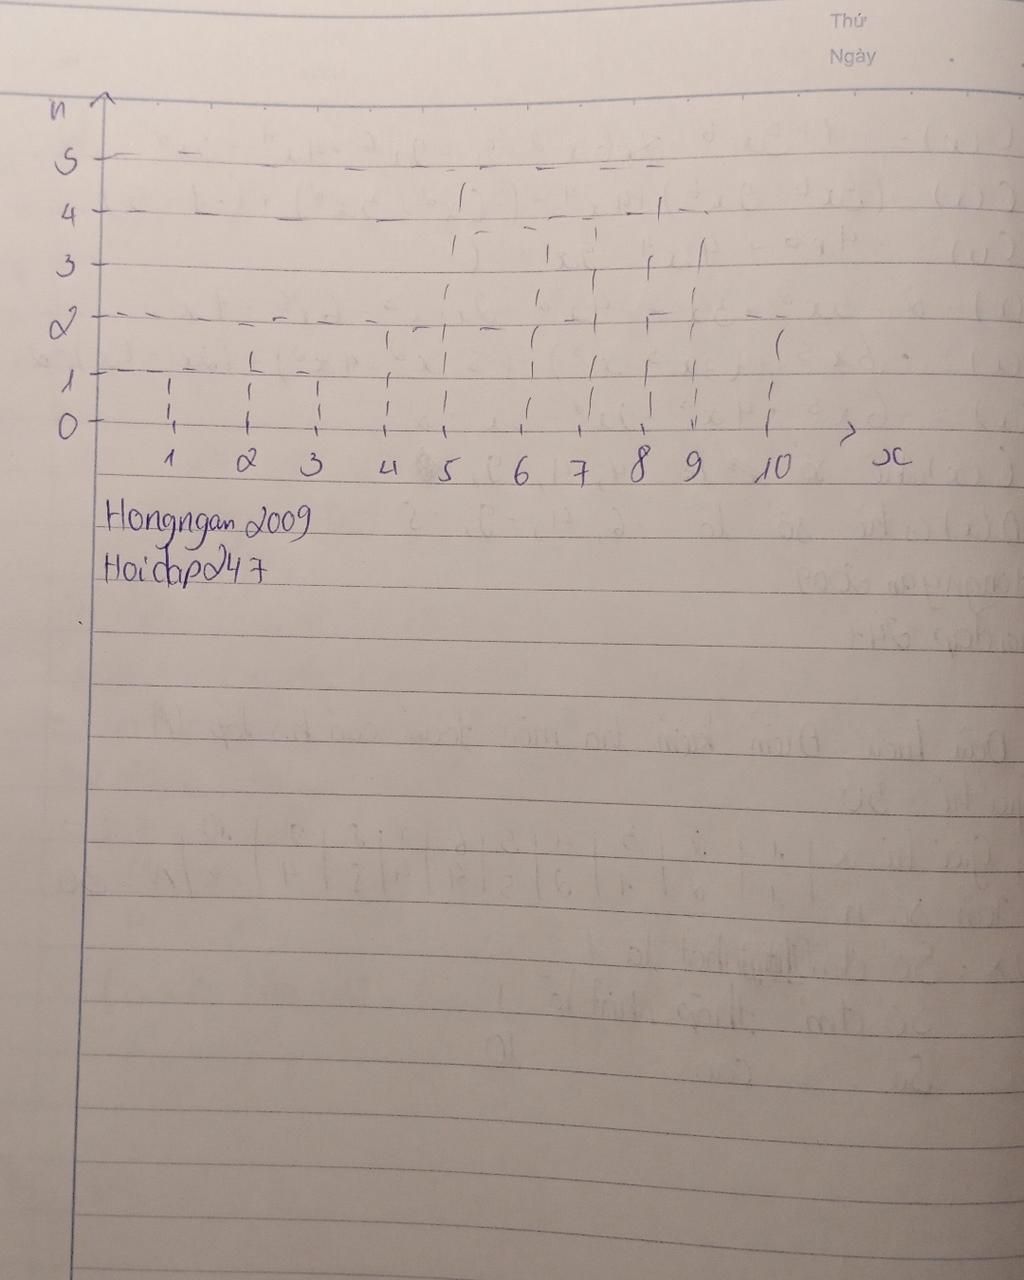 Thứ
Ngày
n
5
4
3
2
1
0
1 2 3 4 5 6 7 8 9 10 x
Hongngan 2009
Hoidap247